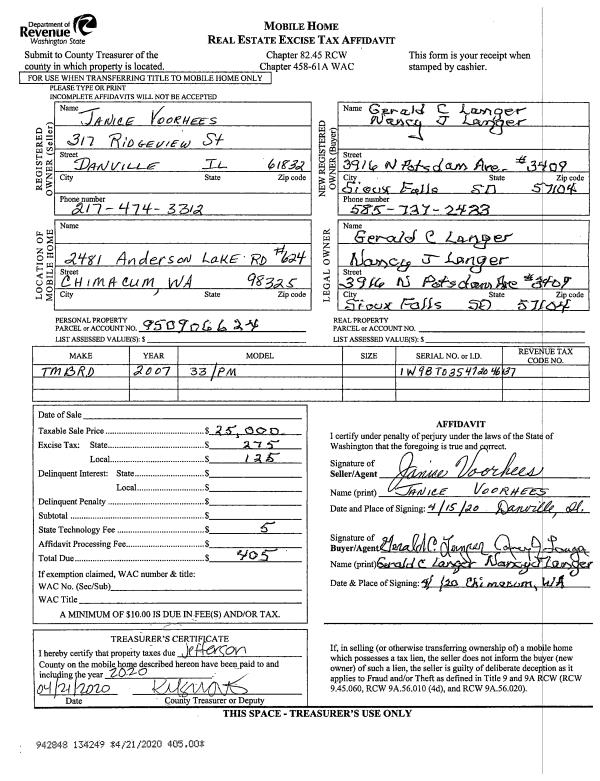 Department of
Revenue
Washington State
MOBILE HOME
REAL ESTATE EXCISE TAX AFFIDAVIT
Submit to County Treasurer of the
county in which property is located.
Chapter 82.45 RCW
Chapter 458-61A WAC
This form is your receipt when
stamped by cashier.
FOR USE WHEN TRANSFERRING TITLE TO MOBILE HOME ONLY
PLEASE TYPE OR PRINT
INCOMPLETE AFFIDAVITS WILL NOT BE ACCEPTED
REGISTERED
OWNER (Seller)
Name
JANICE VOORHEES
317 RIDGEVIEW St
Street
DANVILLE IL 61832
City State Zip code
Phone number
217-474-3312
NEW REGISTERED
OWNER (Buyer)
Name
Gerald C Langer
Nancy J Langer
3916 N Potsdam Ave. #3409
Street
City State Zip code
Sioux Falls SD 57104
Phone number
585-737-2433
LOCATION OF
MOBILE HOME
Name
2481 Anderson LAKE RD #624
Street
CHIMACUM, WA 98325
City State Zip code
LEGAL OWNER
Name
Gerald C Langer
Nancy J Langer
Street
3916 N Potsdam Ave #3409
City State Zip code
Sioux Falls SD 57104
PERSONAL PROPERTY
PARCEL or ACCOUNT NO. 950906624
LIST ASSESSED VALUE(S): $
REAL PROPERTY
PARCEL or ACCOUNT NO.
LIST ASSESSED VALUE(S): $
MAKE YEAR MODEL SIZE SERIAL NO. or I.D. REVENUE TAX CODE NO.
TMBRD 2007 33/PM 1W9BT035472046137
Date of Sale
Taxable Sale Price $ 25,000
Excise Tax: State $ 275
Local $ 125
Delinquent Interest: State $
Local $
Delinquent Penalty $
Subtotal $
State Technology Fee $ 5
Affidavit Processing Fee $
Total Due $ 405
If exemption claimed, WAC number & title:
WAC No. (Sec/Sub)
WAC Title
A MINIMUM OF $10.00 IS DUE IN FEE(S) AND/OR TAX.
AFFIDAVIT
I certify under penalty of perjury under the laws of the State of
Washington that the foregoing is true and correct.
Signature of
Seller/Agent Janice Voorhees
Name (print) JANICE VOORHEES
Date and Place of Signing: 4/15/20 Danville, Il.
Signature of
Buyer/Agent Gerald C. Langer
Name (print) Gerald C Langer Nancy J Langer
Date & Place of Signing: 4/ /20 Chimacum, WA
TREASURER'S CERTIFICATE
I hereby certify that property taxes due Jefferson
County on the mobile home described hereon have been paid to and
including the year 2020
04/21/2020
Date County Treasurer or Deputy
If, in selling (or otherwise transferring ownership of) a mobile home
which possesses a tax lien, the seller does not inform the buyer (new
owner) of such a lien, the seller is guilty of deliberate deception as it
applies to Fraud and/or Theft as defined in Title 9 and 9A RCW (RCW
9.45.060, RCW 9A.56.010 (4d), and RCW 9A.56.020).
THIS SPACE - TREASURER'S USE ONLY
942848 134249 *4/21/2020 405.00*